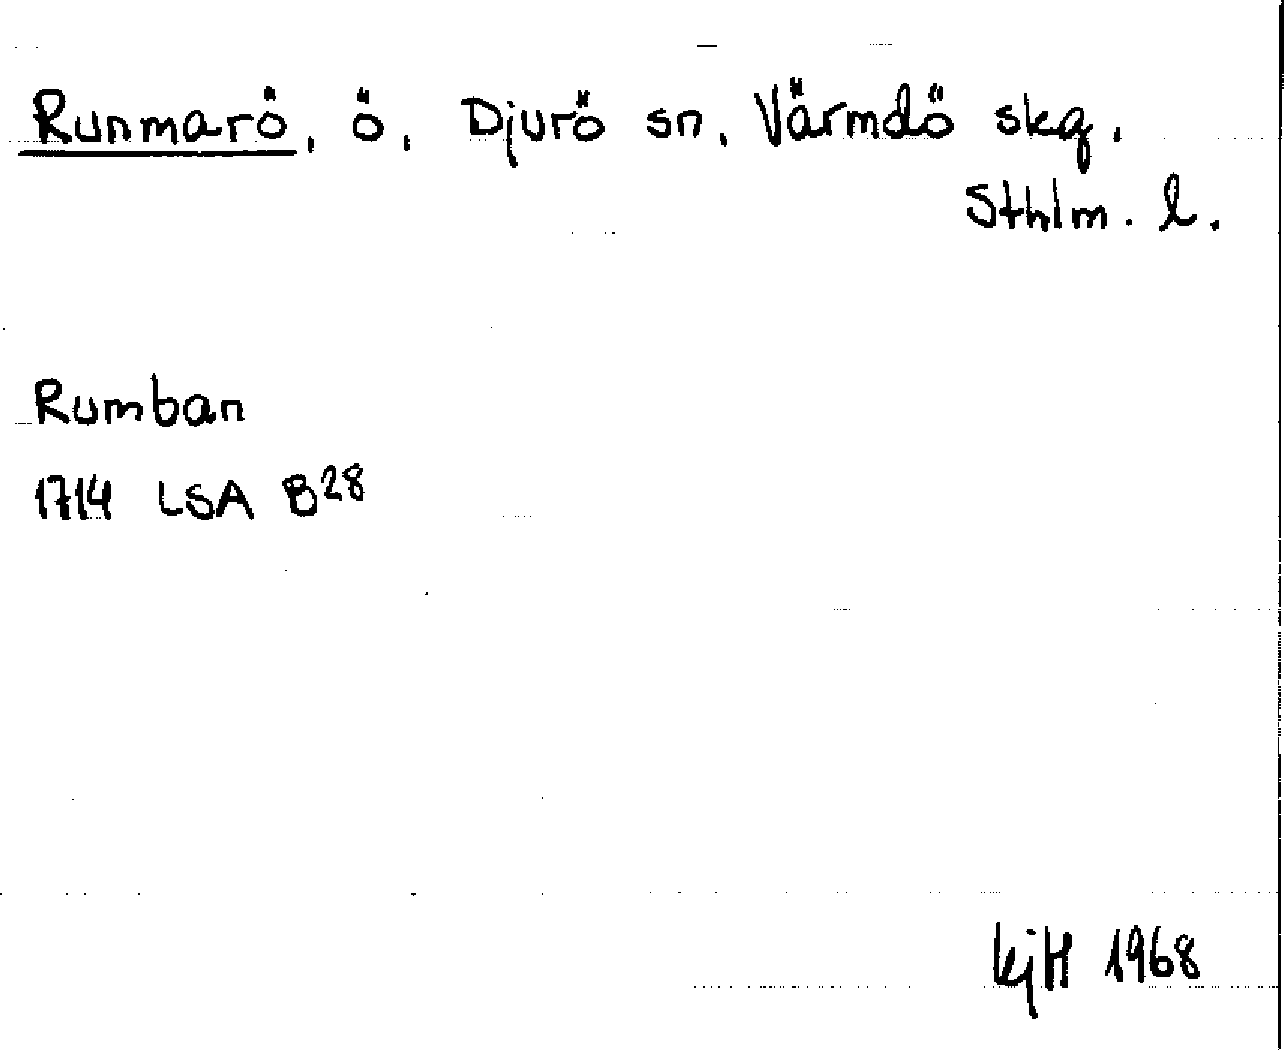 Runmarö, ö, Djurö sn, Värmdö skg.
Sthlm. l.
Rumban
1714 LSA B28
KjH 1968